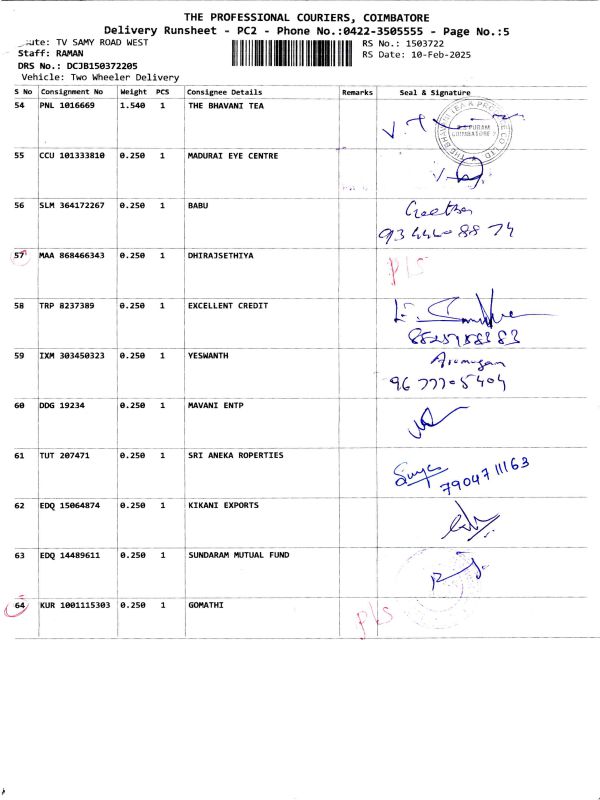 THE PROFESSIONAL COURIERS, COIMBATORE
Delivery Runsheet - PC2 - Phone No.:0422-3505555 - Page No.:5
ute: TV SAMY ROAD WEST RS No.: 1503722
Staff: RAMAN RS Date: 10-Feb-2025
DRS No.: DCJB150372205
Vehicle: Two Wheeler Delivery
S No Consignment No Weight PCS Consignee Details Remarks Seal & Signature
54 PNL 1016669 1.540 1 THE BHAVANI TEA
COIMBATORE
55 CCU 101333810 0.250 1 MADURAI EYE CENTRE
56 SLM 364172267 0.250 1 BABU Geetha
57 MAA 868466343 0.250 1 DHIRAJSETHIYA P/S
58 TRP 8237389 0.250 1 EXCELLENT CREDIT
59 IXM 303450323 0.250 1 YESWANTH Arumugam
96 777-05404
60 DDG 19234 0.250 1 MAVANI ENTP
61 TUT 207471 0.250 1 SRI ANEKA ROPERTIES Surya 7904711163
62 EDQ 15064874 0.250 1 KIKANI EXPORTS
63 EDQ 14489611 0.250 1 SUNDARAM MUTUAL FUND
64 KUR 1001115303 0.250 1 GOMATHI P/S